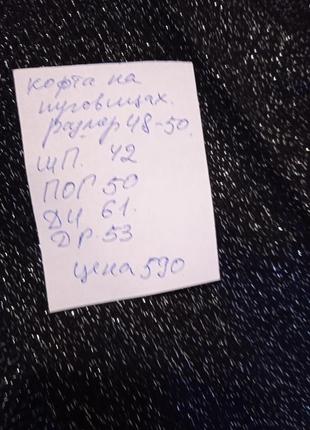 кофта на
пуговицах.
размер 48-50.
ШП. 42
ПОГ 50
ДИ 61.
ДР. 53
цена 590